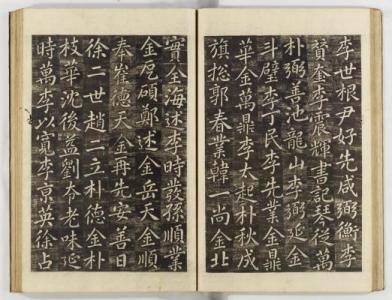 李世根尹好先咸弼衡李
贇奎李震輝書記琴從萬
朴弼善池龍山李弼延金
斗璧李丁民李先業金鼎
華金萬鼎李太起朴秋成
旗摠郭春業韓一尚金北
實全海述李時發孫順業
金厖碩鄭述金岳天金順
奉崔德天金再先安善日
徐二世趙二立朴德金朴
枝華沈後益劉 老味延
時萬李以寬李京英徐占